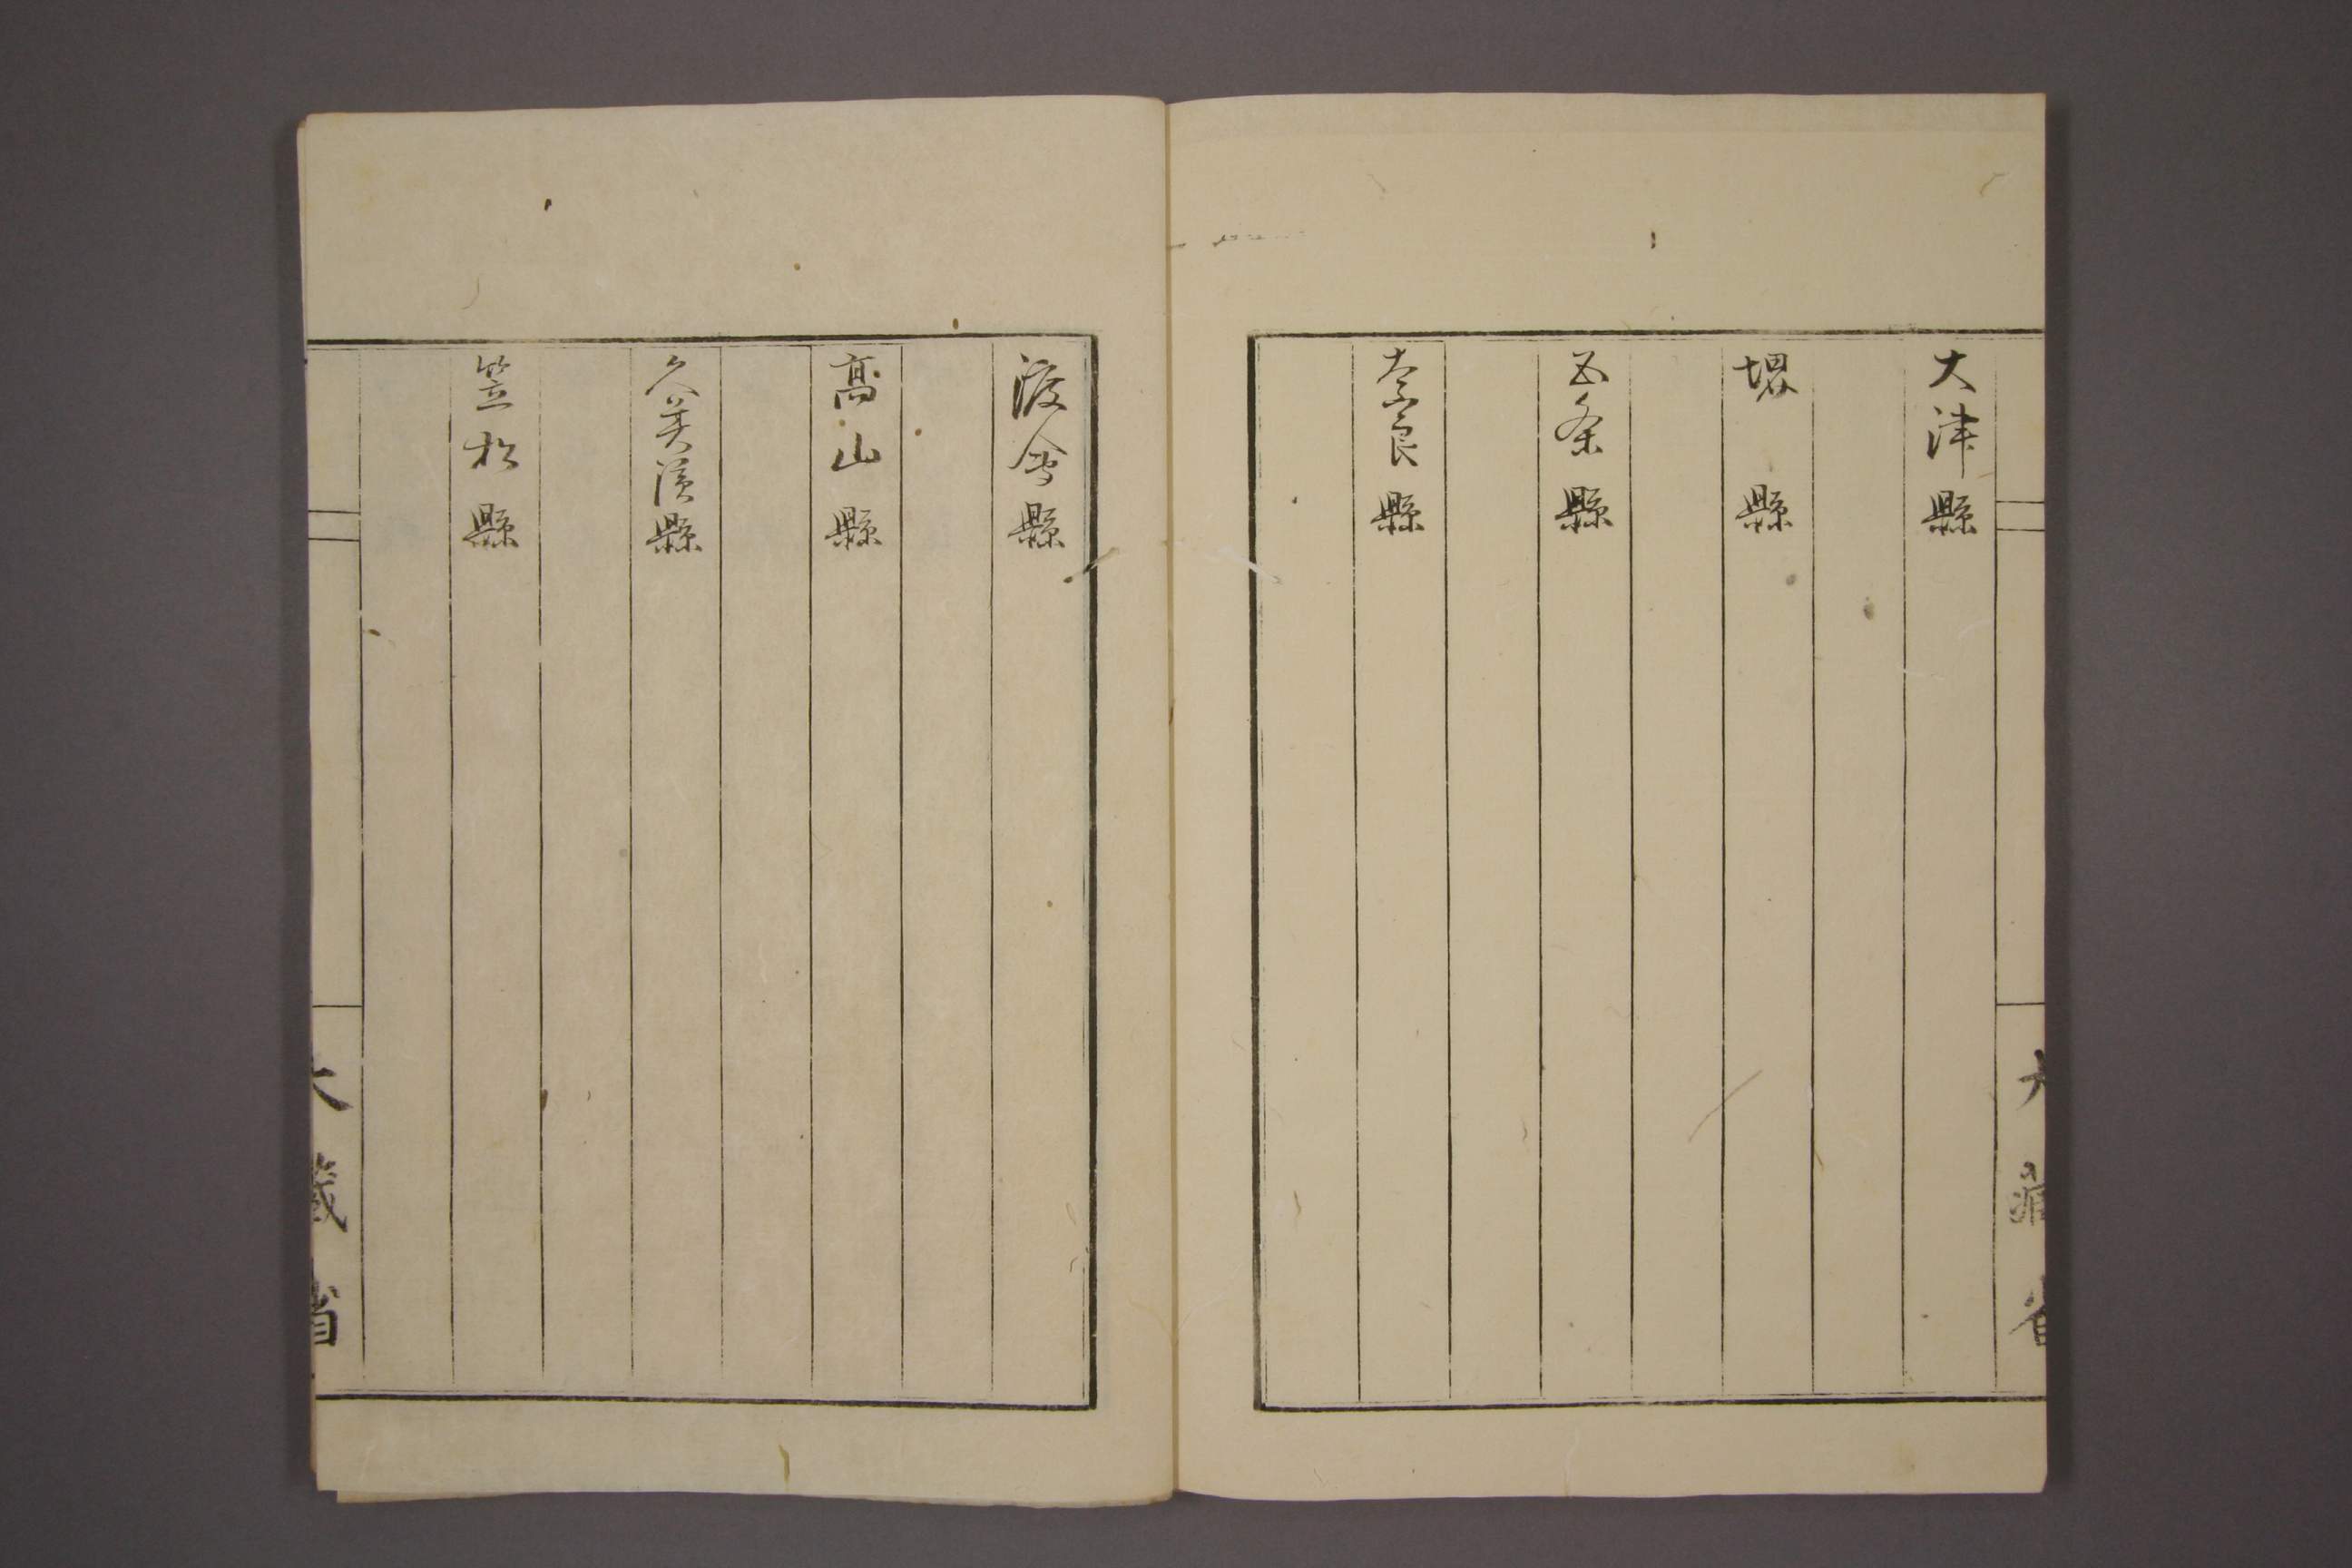 大津縣
堺縣
五条縣
奈良縣
大藏省
渡會縣
高山縣
久美濱縣
笠松縣
大藏省